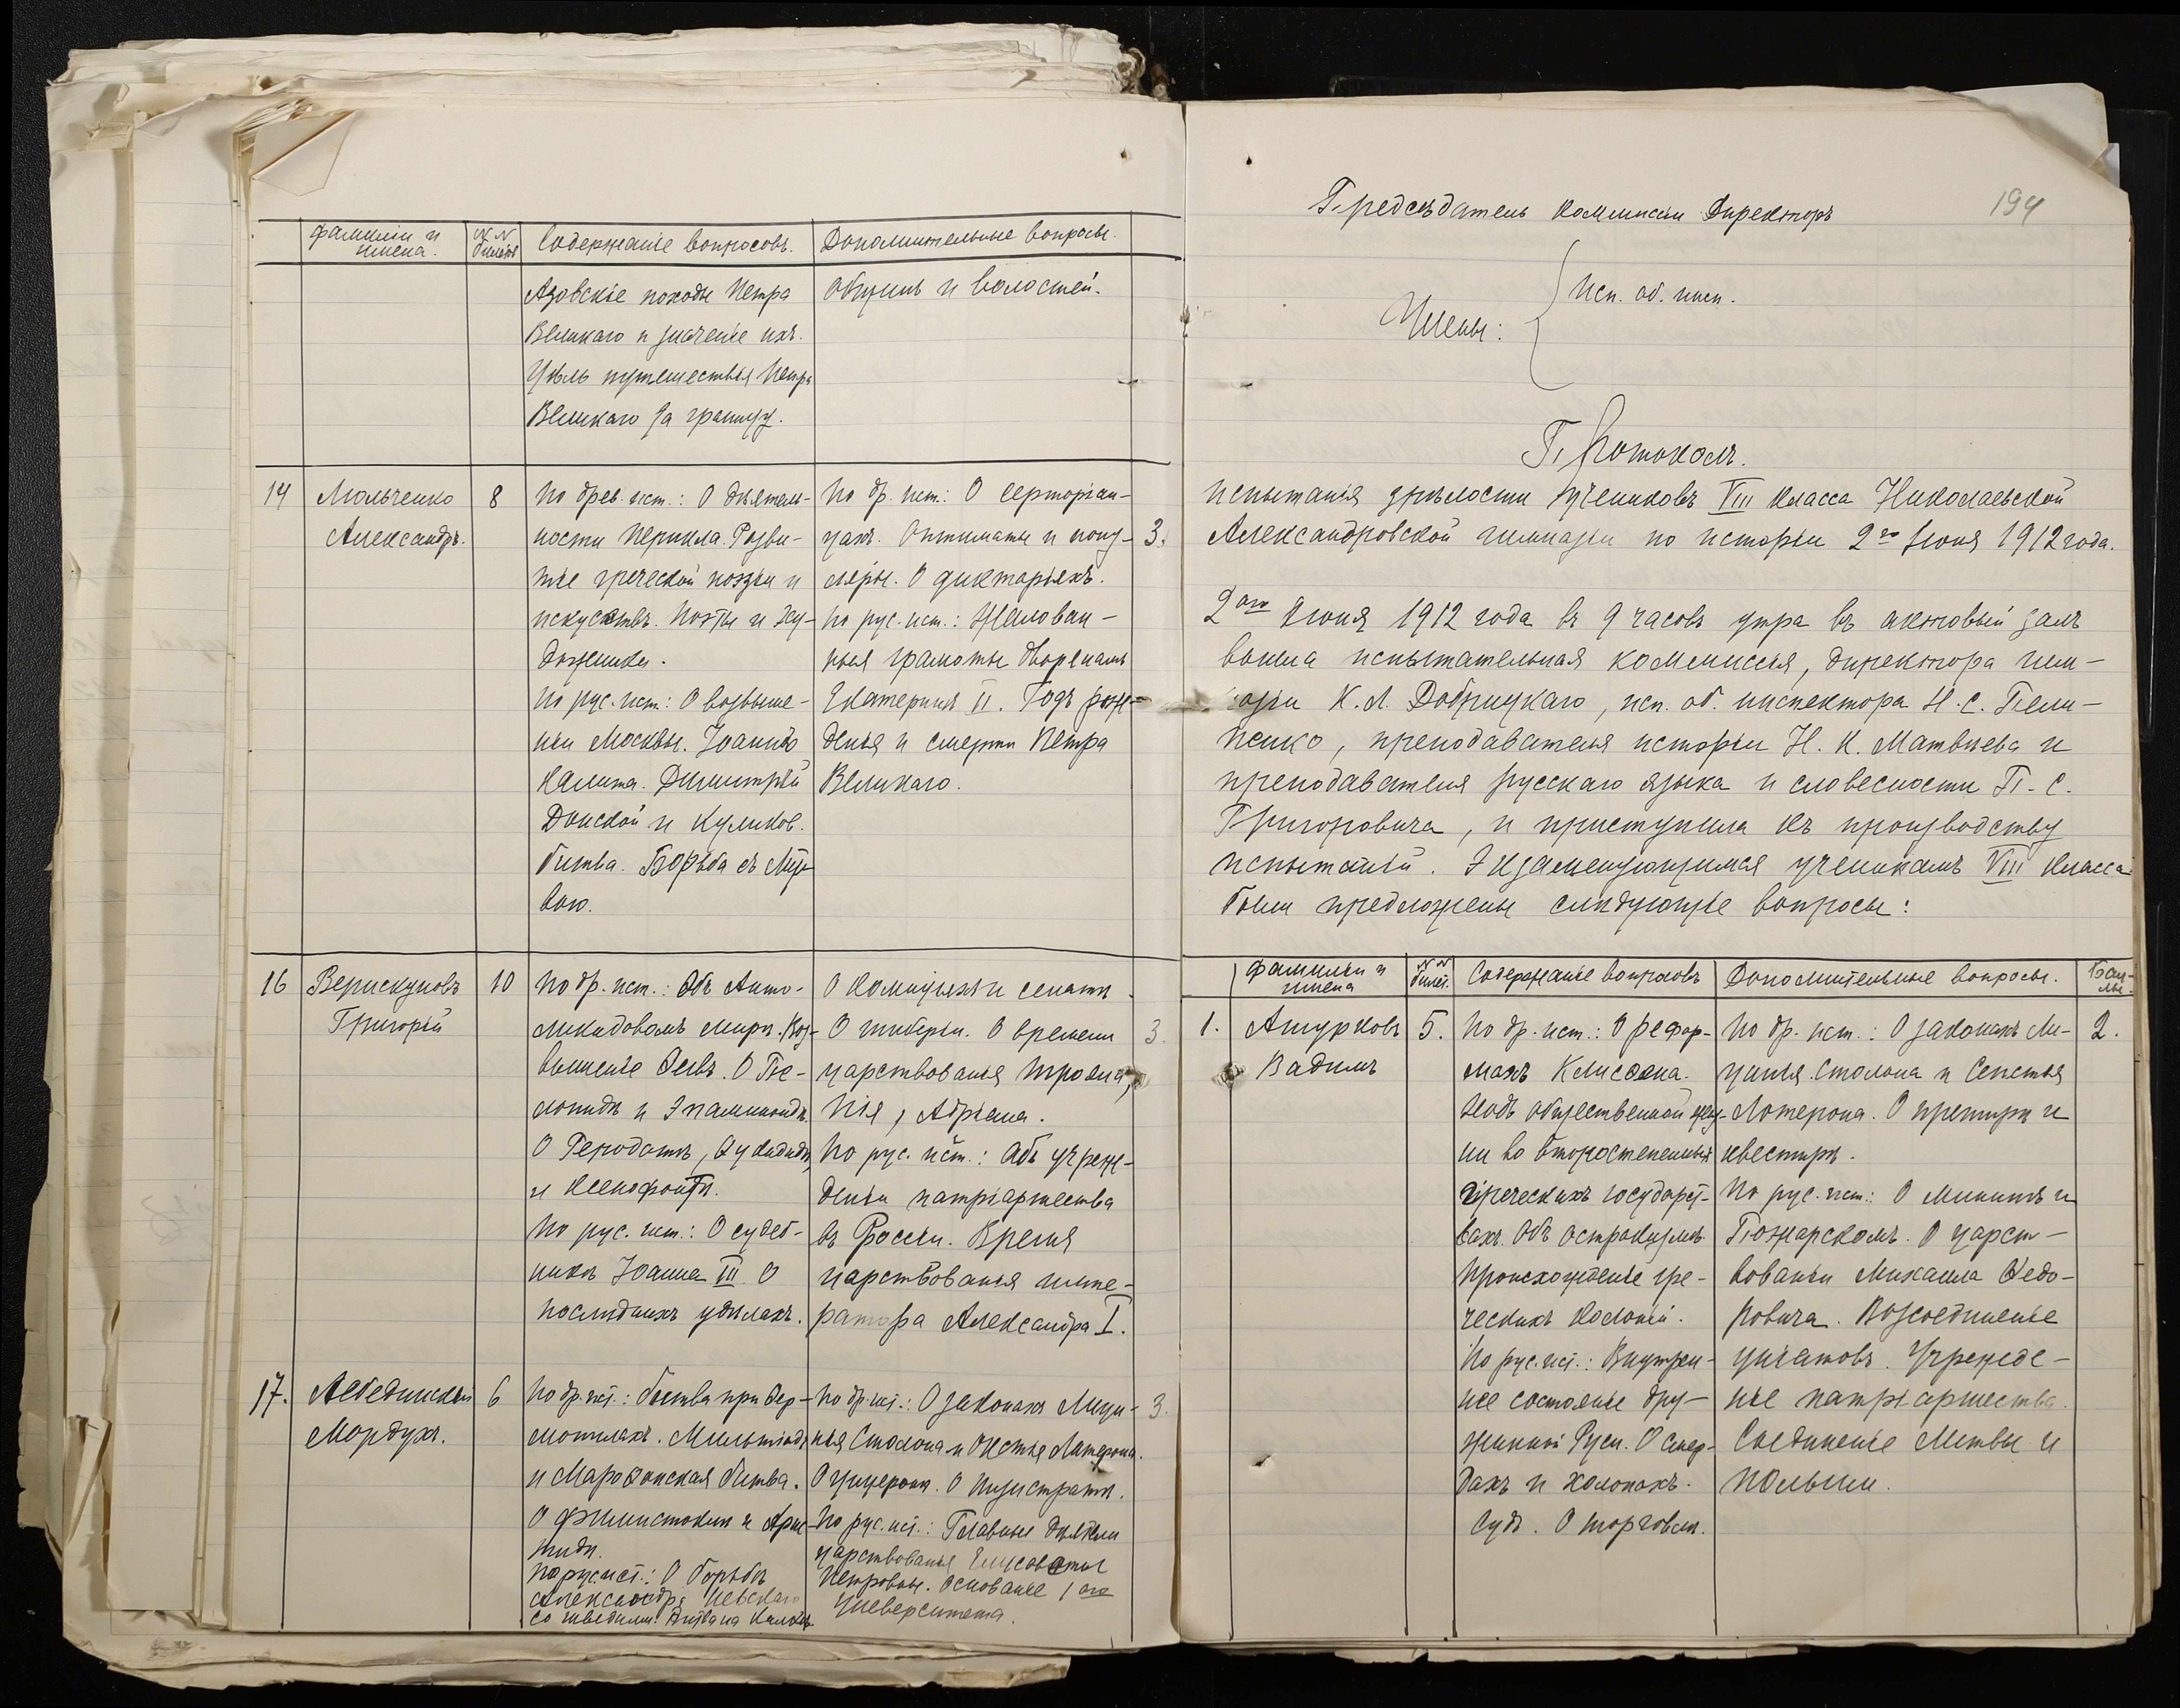 Фамиліи и имена.
№№ билетов
Содержаніе вопросовъ.
Дополнительные вопросы.
Азовскіе походы Петра
Великаго и значеніе ихъ.
Цѣль путешествія Петра
Великаго за границу.
общинъ и волостей.
14
Мольченко
Александръ.
8
По древ. ист.: О дѣятель-
ности Перикла. Разви-
тіе греческой поэзіи и
искусствъ. Поэты и ху-
дожники.
По рус. ист.: О возвыше-
ніи Москвы. Іоаннъ
Калита. Димитрій
Донской и Куликов.
битва. Борьба съ Лит-
вою.
По др. ист.: О серторіан-
цахъ. Оптиматы и попу-
ляры. О диктаріяхъ.
По рус. ист.: Жалован-
ныя грамоты дворянамъ
Екатерины II. Годъ рож-
денія и смерти Петра
Великаго.
3.
16
Верискуновъ
Григорій
10
По др. ист.: Объ Анто-
лкидовомъ мирѣ. Воз-
вышеніе Ѳивъ. О Пе-
лопидѣ и Эпаминондѣ.
О Геродотѣ, Ѳукидидѣ,
и Ксенофонтѣ.
По рус. ист.: О судеб-
никѣ Іоанна III. О
послѣднихъ удѣлахъ.
О комиціяхъ и сенатѣ
О Тиберіи. О времени
царствованія Трояна,
Пія, Адріана.
По рус. ист.: Объ учреж-
деніи патріаршества
въ Россіи. Время
царствованія импе-
ратора Александра I.
3.
17.
Лебединскій
Мордухъ.
6
По др. ист.: битва при Ѳер-
мопилахъ. Мильтіадъ
и Мараѳонская битва.
О Ѳемистоклѣ и Арис-
тидѣ.
По рус. ист.: О борьбѣ
Александра Невскаго
со шведами. Битва на Калкѣ.
По др. ист.: О законахъ Лици-
нія Столона и Секстія Латерона.
О Цицеронѣ. О Пизистратѣ.
По рус. ист.: Главные дѣятели
царствованія Елисаветы
Петровны. Основаніе 1ого
университета.
3.
194
Предсѣдатель Коммиссіи Директоръ
Члены:
Исп. об. инсп.
Протоколъ.
испытанія зрѣлости учениковъ VIII класса Николаевской
Александровской гимназіи по исторіи 2го Іюня 1912 года.
2ого Іюня 1912 года въ 9 часовъ утра въ актовый залъ
вошла испытательная коммиссія, директора гим-
назіи К. Л. Добрицкаго, исп. об. инспектора Н. С. Пели-
пенко, преподавателя исторіи Н. К. Матвѣева и
преподавателя русскаго языка и словесности П. С.
Григоровича, и приступила къ производству
испытаній. Экзаменующимся ученикамъ VIII класса
были предложены слѣдующіе вопросы:
Фамиліи и имена
№№ билет.
Содержаніе вопросовъ
Дополнительные вопросы.
Бал-лы.
1.
Ашурковъ
Вадимъ
5.
По др. ист.: О рефор-
махъ Клисѳена.
Ходъ общественной жиз-
ни во второстепенныхъ
греческихъ государст-
вахъ. Объ остракизмѣ.
Происхожденіе гре-
ческихъ колоній.
По рус. ист.: Внутрен-
нее состояніе дру-
жинной Руси. О смер-
дахъ и холопахъ.
Судъ. О торговлѣ.
По др. ист.: О законахъ Ли-
цинія Столона и Секстія
Лотерона. О преторѣ и
квесторѣ.
По рус. ист.: О Мининѣ и
Пожарскомъ. О царст-
вованіи Михаила Ѳедо-
ровича. Возсоединеніе
уніатовъ. Учрежде-
ніе патріаршества.
Соединеніе Литвы и
Польши.
2.